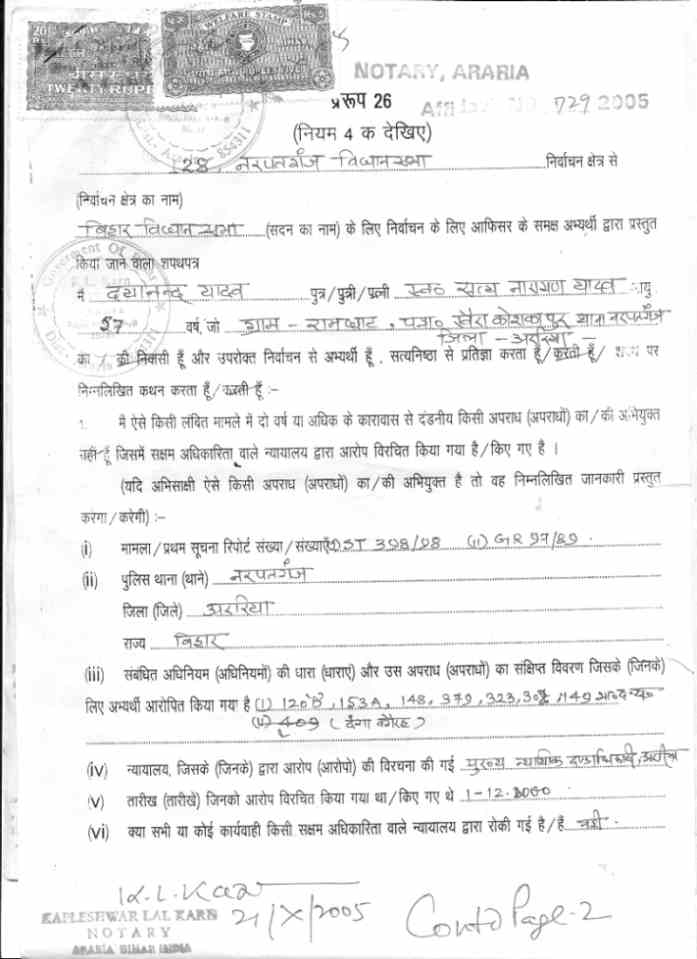 20
WELFARE STAMP
TWENTY RUPE
NOTARY, ARARIA
प्ररूप 26
729 2005
(नियम 4 क देखिए)
28, नरपतगंज विधानसभा निर्वाचन क्षेत्र से
(निर्वाचन क्षेत्र का नाम)
बिहार विधान सभा (सदन का नाम) के लिए निर्वाचन के लिए आफिसर के समक्ष अभ्यर्थी द्वारा प्रस्तुत
किया जाने वाला शपथपत्र
मैं दयानन्द यादव पुत्र/पुत्री/पत्नी स्व० सत्य नारायण यादव आयु
57 वर्ष, जो ग्राम - रामघाट, पत्रा० खैरा कोशकापुर थाना नरपतगंज
जिला - अररिया
का / की निवासी हूँ और उपरोक्त निर्वाचन से अभ्यर्थी हूँ , सत्यनिष्ठा से प्रतिज्ञा करता हूँ/करती हूँ/ शपथ पर
निम्नलिखित कथन करता हूँ/करती हूँ :–
1. मै ऐसे किसी लंबित मामले में दो वर्ष या अधिक के कारावास से दंडनीय किसी अपराध (अपराधों) का/की अभियुक्त
नहीं हूँ जिसमें सक्षम अधिकारिता वाले न्यायालय द्वारा आरोप विरचित किया गया है/किए गए है ।
(यदि अभिसाक्षी ऐसे किसी अपराध (अपराधों) का/की अभियुक्त है तो वह निम्नलिखित जानकारी प्रस्तुत
करेगा/करेगी) :–
(i) मामला/प्रथम सूचना रिपोर्ट संख्या/संख्याएँ ST 398/98 (ii) GR 97/89 .
(ii) पुलिस थाना (थाने) नरपतगंज
जिला (जिले) अररिया
राज्य बिहार
(iii) संबंधित अधिनियम (अधिनियमों) की धारा (धाराएं) और उस अपराध (अपराधों) का संक्षिप्त विवरण जिसके (जिनके)
लिए अभ्यर्थी आरोपित किया गया है (i) 120B, 153A, 148, 379, 323, 149
(ii) 409 (दंगा वगैरह)
(iv) न्यायालय, जिसके (जिनके) द्वारा आरोप (आरोपो) की विरचना की गई मुख्य न्यायिक दण्डाधिकारी, अररिया
(v) तारीख (तारीखे) जिनको आरोप विरचित किया गया था/किए गए थे 1-12-2000
(vi) क्या सभी या कोई कार्यवाही किसी सक्षम अधिकारिता वाले न्यायालय द्वारा रोकी गई है/है नहीं .
K.L.Karn
KAPLESHWAR LAL KARN
21/X/2005
NOTARY
ARARIA BIHAR INDIA
Contd Page-2